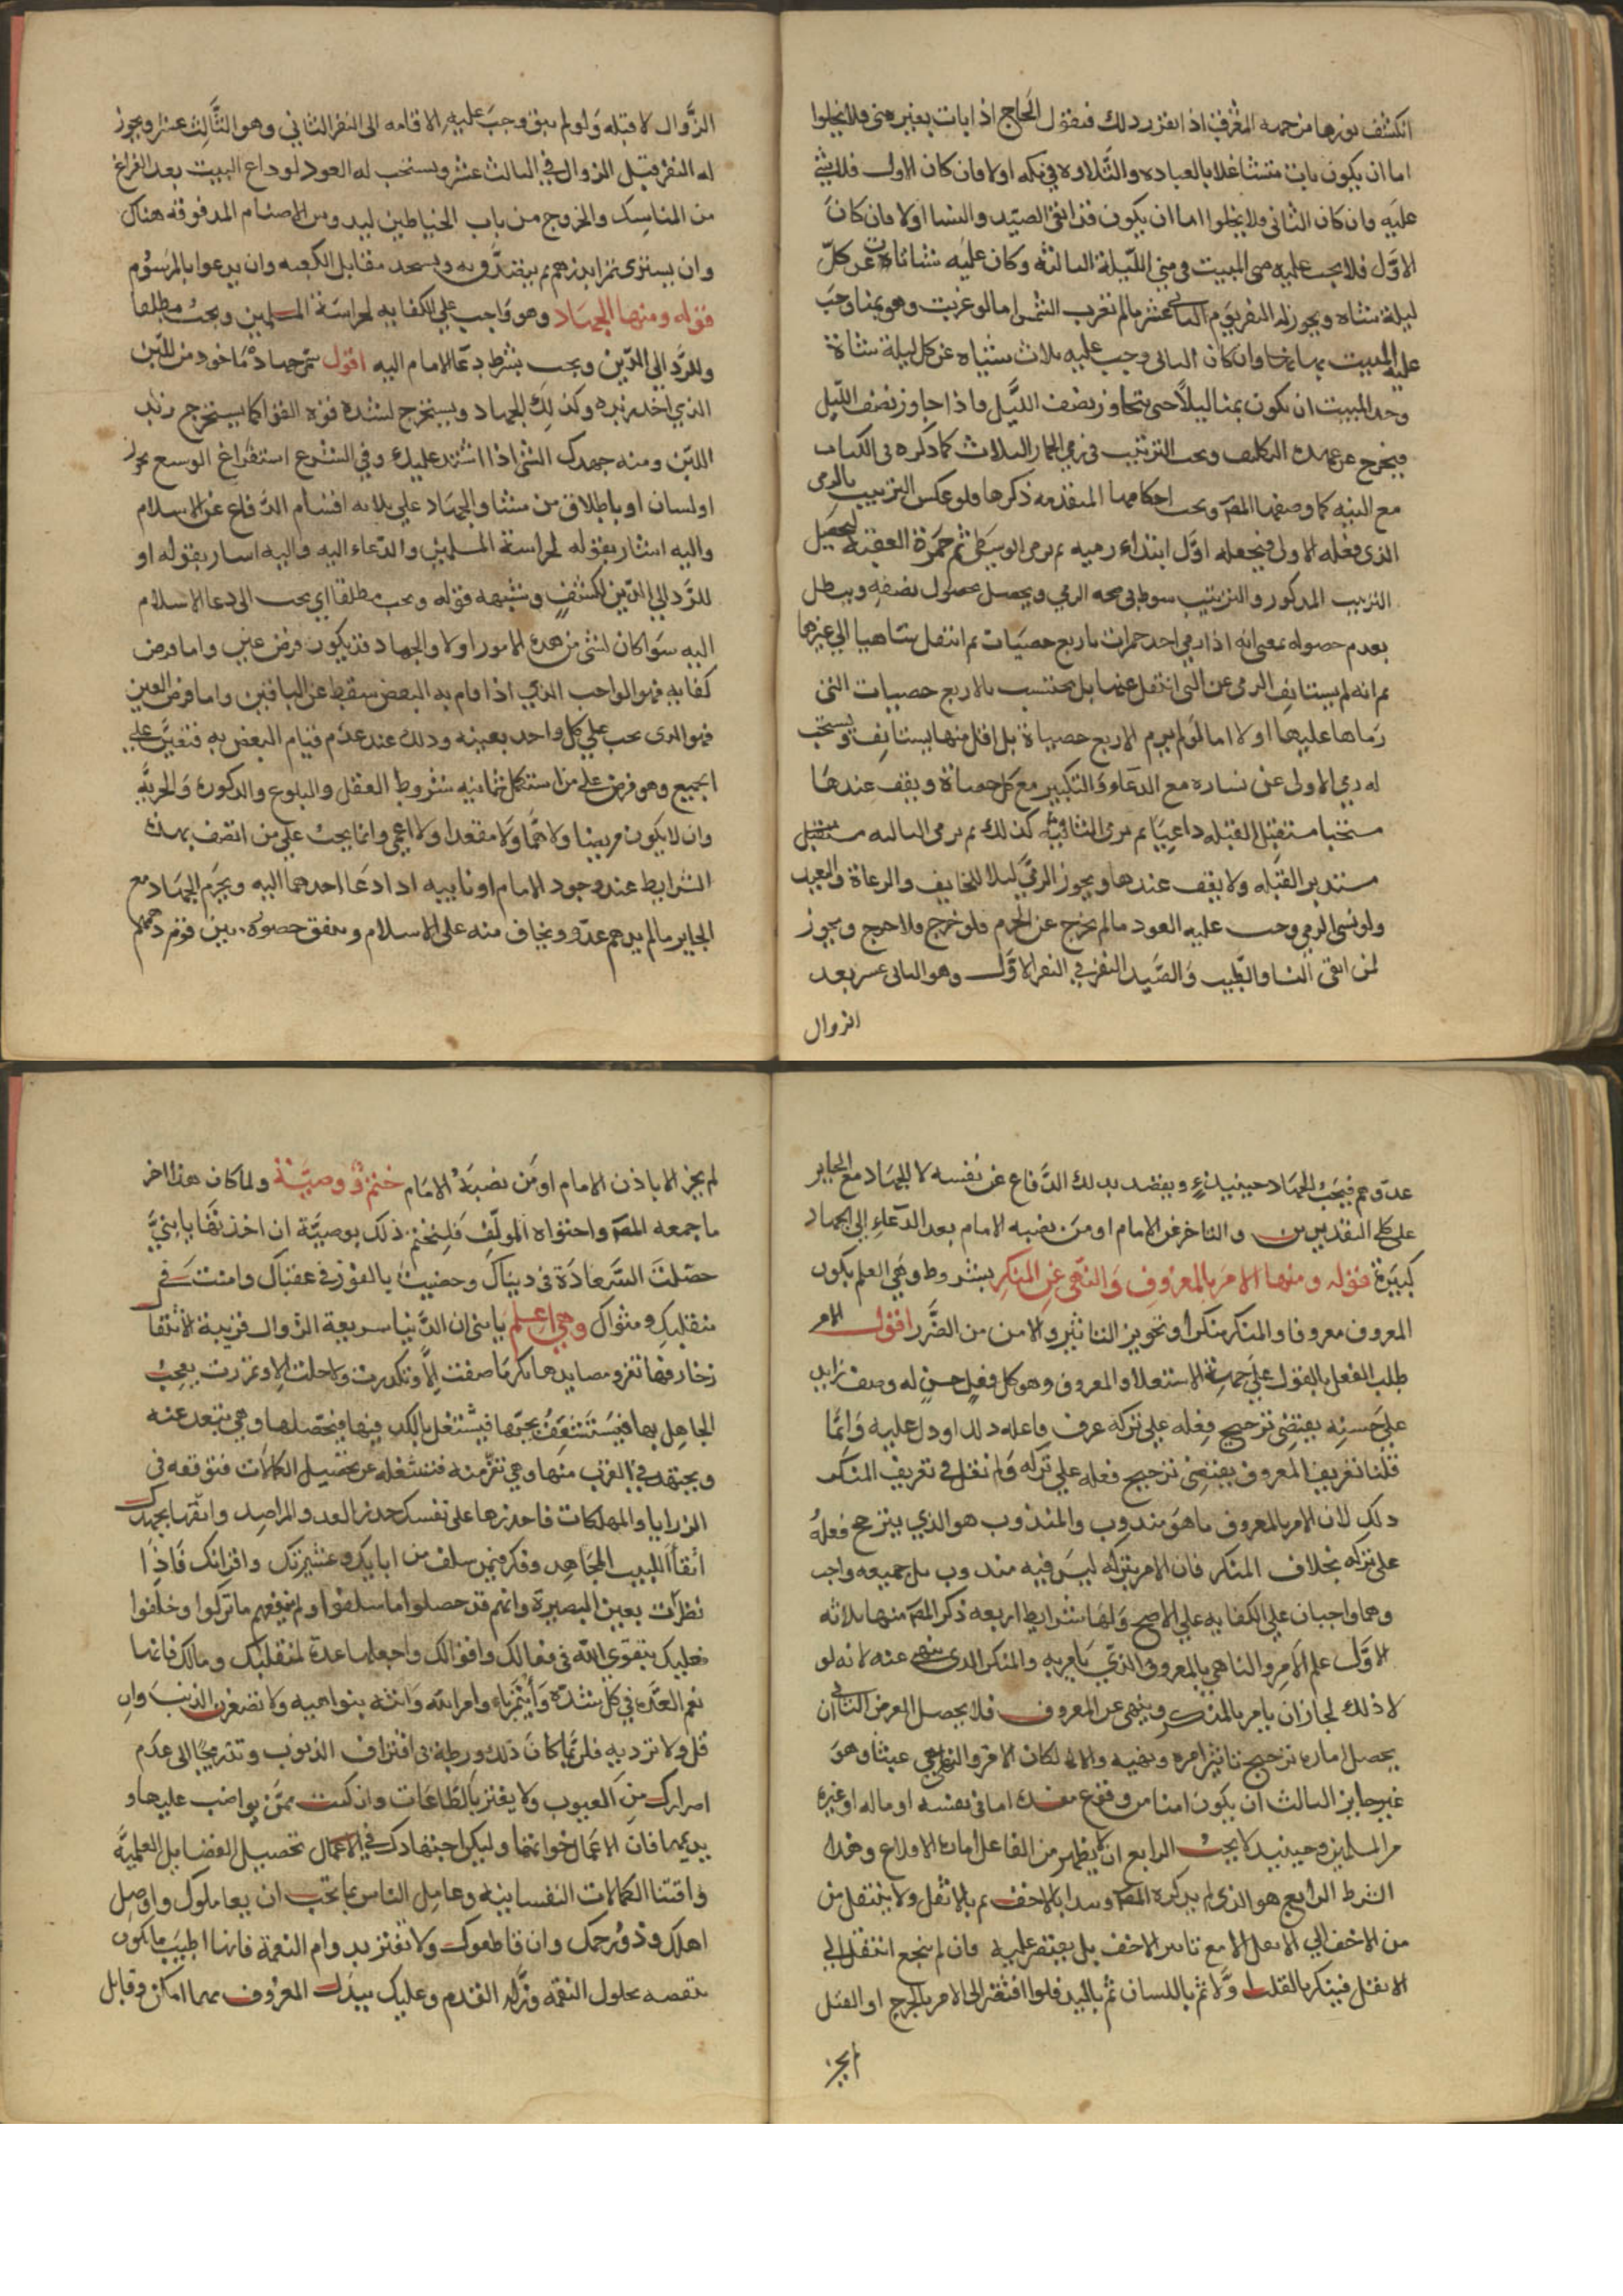 انكشف نورها من جهة المغرب اذا تقرر ذلك فنقول الحاج اذا بات بغير منى فلا يخلوا
اما ان يكون بات متشاغلا بالعباده والتلاوه في مكه اولا فان كان الاول فلا شئ
عليه وان كان الثاني فلا يخلوا اما ان يكون قد اتقى الصيد والنسا اولا فان كان
الاول فلا يجب عليه المبيت في منى الليلة الثالثه وكان عليه شاتان عن كل
ليلة شاه ويجوز له النفر يوم الثاني عشر مالم تغرب الشمس اما لو غربت وهو بمنا وجب
عليه المبيت بها وان كان الثاني وجب عليه ثلاث شياه عن كل ليلة شاة
وحد المبيت ان يكون بمنا ليلا حتى يتجاوز نصف الليل فاذا جاوز نصف الليل
فيخرج عن عهده التكليف ويجب الترتيب في رمي الجمار الثلاث كما ذكره في الكتاب
مع النيه كما وصفها المص ويجب احكامها المتقدمه ذكرها فلو عكس الترتيب بالرمي
الذي فعله الاولى فيجعله اول ابتداء رميه ثم يرمي الوسطى ثم جمرة العقبة ليحصل
الترتيب المذكور والترتيب شرط في صحه الرمي ويحصل بحصول نصفه ويبطل
بعدم حصوله بمعنى انه اذا رمى احد جمرات باربع حصيات ثم انتقل ساهيا الى غيرها
ثم انه لم يستانف الرمي عن التي انتقل عنها بل يحتسب بالاربع حصيات التي
رماها عليها اولا اما لو لم يرم الاربع حصياة بل اقل منها يستانف ويستحب
له رمي الاولى عن يساره مع الدعاء والتكبير مع كل حصاة ويقف عندها
مستقبل القبله داعيا ثم يرمي الثانية كذلك ثم يرمي الثالثه مستقبل
مستدبر القبله ولا يقف عندها ويجوز الرمي ليلا للخايف والرعاة والعبد
ولو نسى الرمي وجب عليه العود مالم يخرج عن الحرم فلو خرج فلا حرج ويجوز
لمن اتقى النسا والطيب والصيد النفر في النفر الاول وهو الثاني عشر بعد
الزوال
الزوال لا قبله ولو لم يتق وجب عليه الاقامه الى النفر الثاني وهو الثالث عشر ويجوز
له النفر قبل الزوال في الثالث عشر ويستحب له العود لوداع البيت بعد الفراغ
من المناسك والخروج من باب الحناطين ليدوس الاصنام المدفوقه هناك
وان يشتري تمرا بدرهم ثم يتصدق به ويسجد مقابل الكعبه وان يدعوا بالمرسوم
قوله ومنها الجهاد وهو واجب على الكفايه لحراسة المسلمين ويجب مطلقا
وللرد الى الدين ويجب بشرط دعا الامام اليه اقول الجهاد ماخوذ من اللبن
الذي اخذ زبده وكذلك الجهاد ويستخرج لشدة قوه القوا كما يستخرج زبد
اللبن ومنه جهدك الشئ اذا اشتد عليك وفي الشرع استفراغ الوسع
او لسان او باطلاق من منشا والجهاد على ثلاثه اقسام الدفاع عن الاسلام
واليه اشار بقوله لحراسة المسلمين والدعاء اليه واليه اشار بقوله او
للرد الى الدين لكشف وشبهه قوله ويجب مطلقا اي يجب الى دعا الاسلام
اليه سوا كان لشئ من هذه الامور اولا والجهاد قد يكون فرض عين واما فرض
كفايه فهو الواجب الذي اذا قام به البعض سقط عن الباقين واما فرض العين
فهو الذي يجب على كل واحد بعينه وذلك عند عدم قيام البعض به فتعين على
الجميع وهو فرض على من استكمل ثمانيه شروط العقل والبلوع والذكورة والحريه
وان لا يكون مريضا ولا هما ولا مقعدا ولا اعمى وانما يجب على من اتصف بهذه
الشرايط عند وجود الامام او نايبه اذا دعا احدهما اليه ويحرم الجهاد مع
الجاير مالم يدهم عدو ويخاف منه على الاسلام ويتفق حصوله بين قوم دهمهم
عدوهم فيجب الجهاد حينيذ ويقصد بذلك الدفاع عن نفسه لا للجهاد مع الجاير
على كلي التقديرين والتاخر عن الامام او من نصبه الامام بعد الدعاء الى الجهاد
كبيرة قوله ومنها الامر بالمعروف والنهي عن المنكر بشروط وهي العلم بكون
المعروف معروفا والمنكر منكرا وتجويز التاثير والامن من الضرر اقول الامر
طلب الفعل بالقول على جهة الاستعلا والمعروف وهو كل فعل حسن له وصف زايد
على حسنه يقتضي ترجيح فعله على تركه عرف فاعله ذلك او دل عليه وانما
قلنا تعريف المعروف يقتضي ترجيح فعله على تركه ولم نقل في تعريف المنكر
ذلك لان الامر بالمعروف ما هو مندوب والمندوب هو الذي يترجح فعله
على تركه بخلاف المنكر فان الامر بتركه ليس فيه مندوب بل جميعه واجب
وهما واجبان على الكفايه على الاصح ولها شرايط اربعه ذكر المص منها ثلاثه
الاول علم الامر والناهي بالمعروف الذي يامر به والمنكر الذي ينهى عنه لانه لو
لا ذلك لجاز ان يامر بالمنكر وينهى عن المعروف فلا يحصل الغرض الثاني ان
يحصل اماره ترجيح تاثير امره ونهيه والا لكان الامر والنهي عبثا وهو
غير جايز الثالث ان يكون امنا من وقوع مفسدة اما في نفسه او ماله او غيره
من المسلمين وحينيذ لا يجب الرابع ان لا يظهر من الفاعل اماره الاقلاع وهذا
الشرط الرابع هو الذي لم يذكره المص ويبدا بالاخف ثم بالاثقل ولا ينتقل من
من الاخف الى الاثقل الا مع تاثير الاخف بل يقتصر عليه فان لم ينجع انتقل الى
الاثقل فينكر بالقلب اولا ثم باللسان ثم باليد فلوا افتقر الى الامر بالجرح او القتل
لم يجز
لم يجز الا باذن الامام او من نصبه الامام ختم ووصيّة ولما كان هذا اخر
ما جمعه المص واحتواه المولف فلنختم ذلك بوصية ان اخذتها يا بني
حصلت السعادة في دنياك وحضيت بالفوز في عقباك وامنت في
منقلبك ومثواك وهي اعلم يا بني ان الدنيا سريعة الزوال قريبة الانتقا
زخارفها تغر ومصايدها تكر ما صفت الا وتكدرت ولا حلت الا وتمررت يعجب
الجاهل بها فيستشغف بحبها فيشتغل بالكد فيها فيحصلها وهي تبعد عنه
ويجتهد في القرب منها وهي تفر منه فتشغله عن تحصيل الكمالات فتوقعه في
الرزايا والمهلكات فاحذرها على نفسك حذر العدو المراصد واتقها بجهدك
اتقا اللبيب المجاهد وفكر فيمن سلف من ابايك وعشيرتك واقرانك فاذا
نظرت بعين البصيرة وانهم قد حصلوا ما سلفوا ولم ينفعهم ما تركوا وخلفوا
فعليك بتقوى الله في فعالك واقوالك واجعلها عدة لمنقلبك ومالك فانها
نعم العده في كل شدة وأيتمر باوامر الله وانته بنواهيه ولا تصغرن الذنب وان
قل ولا تزد به فلربما كان ذلك ورطة في اقتراف الذنوب وتدريجا الى عدم
اصرارك من العيوب ولا يغتر بالطاعات وان كنت ممن يواضب عليها و
يديمها فان الاعمال خواتمها وليكن اجتهادك في الاعمال تحصيل الفضايل العلمية
واقتنا الكمالات النفسانية وعامل الناس بما تحب ان يعاملوك واوصل
اهلك وذو رحمك وان قاطعوك ولا تغتر بدوام النعمة فانها اطيب ما تكون
بتقصه بحلول النقمه وزله القدم وعليك ببذل المعروف مهما امكن وقابل